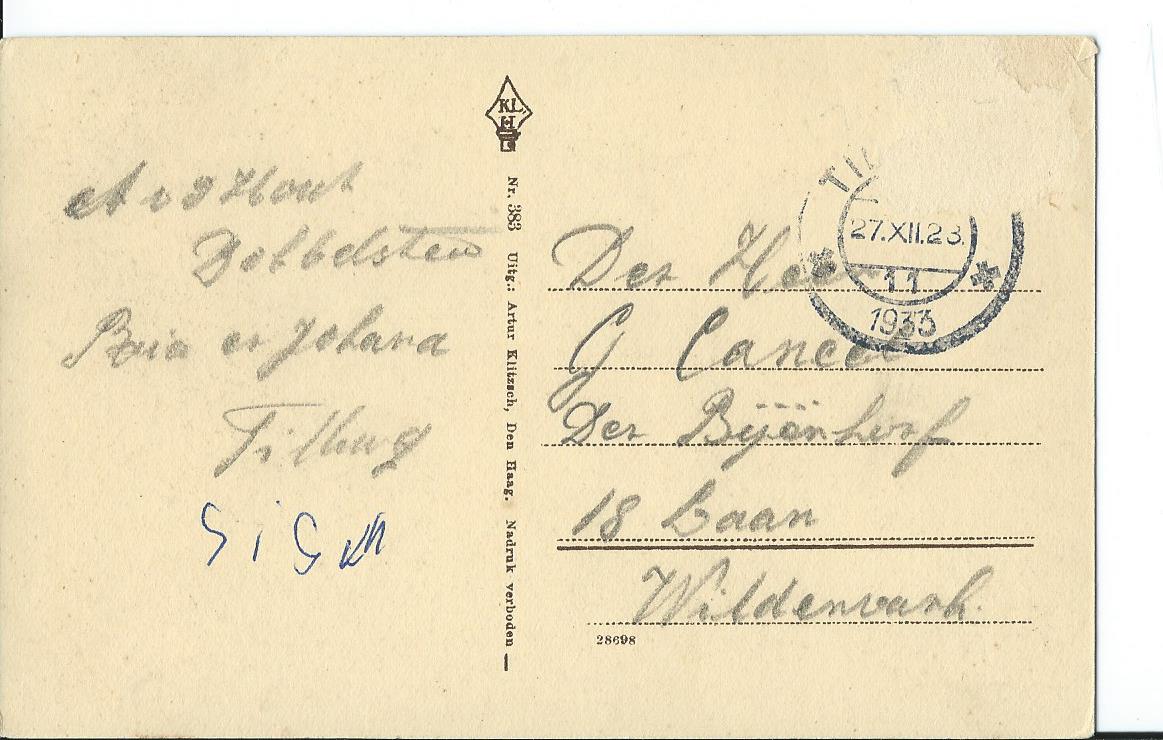 A v d Hout
Dobbelsteen
en Johana
Tilburg
KL
H
Nr. 383 Uitg.: Artur Klitzsch, Den Haag. Nadruk verboden
TIL
27.XII.23.
11
1933
Der Heer
G Cancel
Der Bijënhorf
18 Laan
28698